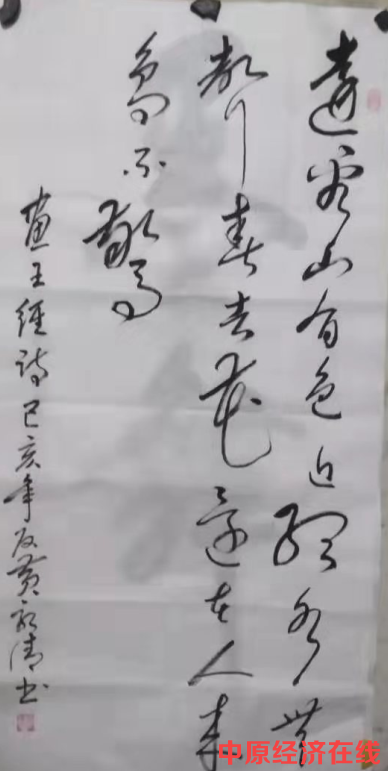 遠看山有色近聽水無
聲春去花還在人來
鳥不驚
畫王維詩己亥年黄清书
中原经济在线